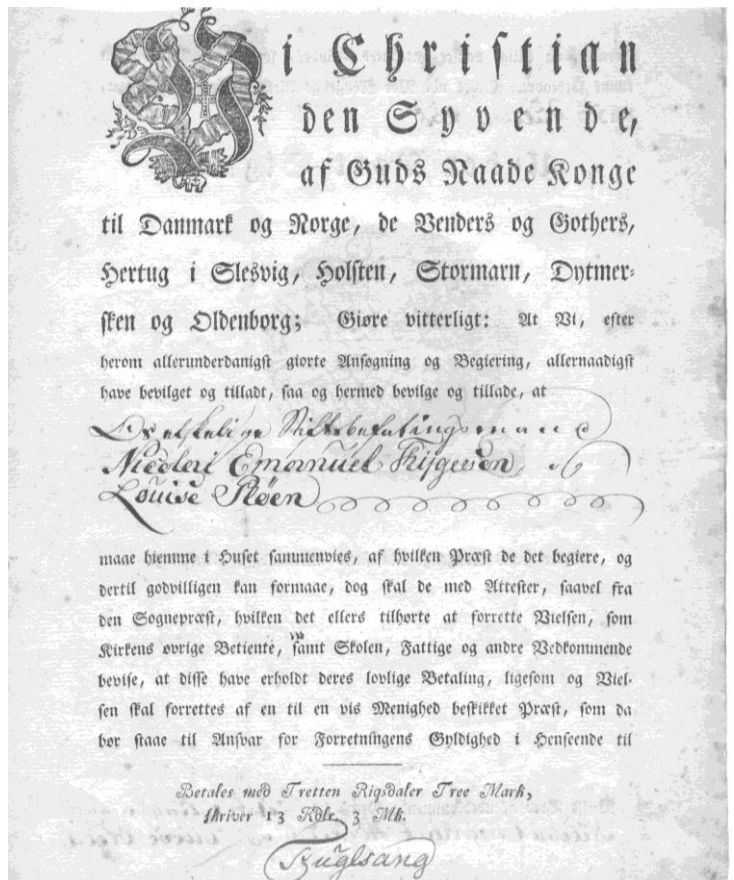 Vi Christian
den Syvende,
af Guds Naade Konge
til Danmark og Norge, de Venders og Gothers,
Hertug i Slesvig, Holsten, Stormarn, Dytmer-
sken og Oldenborg; Giøre vitterligt: At Vi, efter
herom allerunderdanigst giorte Ansøgning og Begiering, allernaadigst
have bevilget og tilladt, saa og hermed bevilge og tillade, at
Stiftsbefalingsmand
Nicolai Emanuel
Louise Pløen
maae hiemme i Huset sammenvies, af hvilken Præst de det begiere, og
dertil godvilligen kan formaae, dog skal de med Attester, saavel fra
den Sognepræst, hvilken det ellers tilhørte at forrette Vielsen, som
Kirkens øvrige Betiente, samt Skolen, Fattige og andre Vedkommende
bevise, at disse have erholdt deres lovlige Betaling, ligesom og Viel-
sen skal forrettes af en til en vis Menighed beskikket Præst, som da
bør staae til Ansvar for Forretningens Gyldighed i Henseende til
Betales med Tretten Rigsdaler Tree Mark,
skriver 13 Rdlr. 3 Mk.
Fuglsang